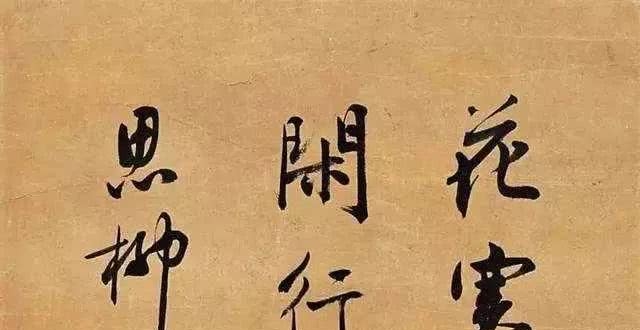 花寒
閑行
思柳